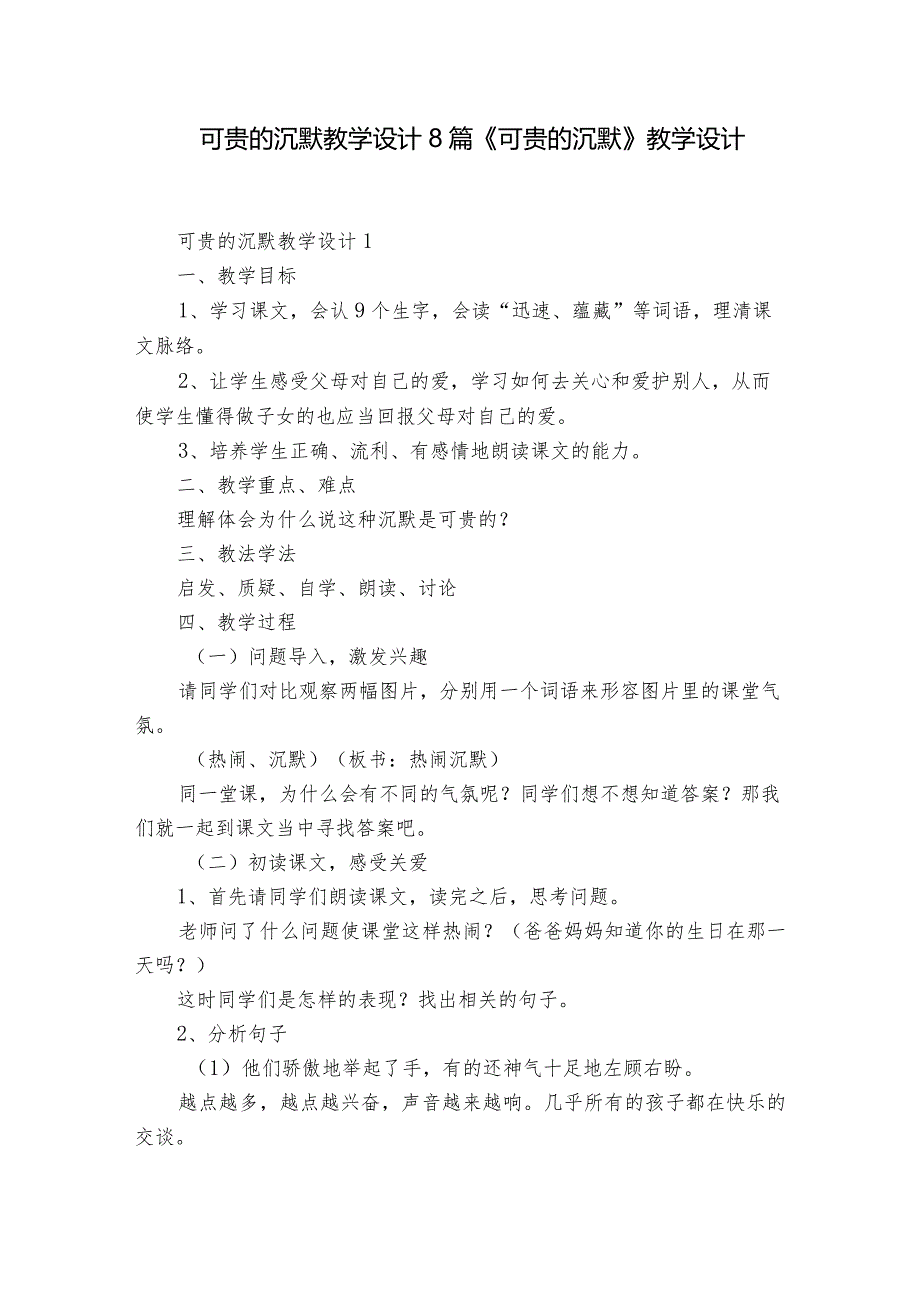 可贵的沉默教学设计8篇《可贵的沉默》教学设计
可贵的沉默教学设计1
一、教学目标
1、学习课文，会认9个生字，会读“迅速、蕴藏”等词语，理清课
文脉络。
2、让学生感受父母对自己的爱，学习如何去关心和爱护别人，从而
使学生懂得做子女的也应当回报父母对自己的爱。
3、培养学生正确、流利、有感情地朗读课文的能力。
二、教学重点、难点
理解体会为什么说这种沉默是可贵的？
三、教法学法
启发、质疑、自学、朗读、讨论
四、教学过程
（一）问题导入，激发兴趣
请同学们对比观察两幅图片，分别用一个词语来形容图片里的课堂气
氛。
（热闹、沉默）（板书：热闹沉默）
同一堂课，为什么会有不同的气氛呢？同学们想不想知道答案？那我
们就一起到课文当中寻找答案吧。
（二）初读课文，感受关爱
1、首先请同学们朗读课文，读完之后，思考问题。
老师问了什么问题使课堂这样热闹？（爸爸妈妈知道你的生日在那一
天吗？）
这时同学们是怎样的表现？找出相关的句子。
2、分析句子
（1）他们骄傲地举起了手，有的还神气十足地左顾右盼。
越点越多，越点越兴奋，声音越来越响。几乎所有的孩子都在快乐的
交谈。